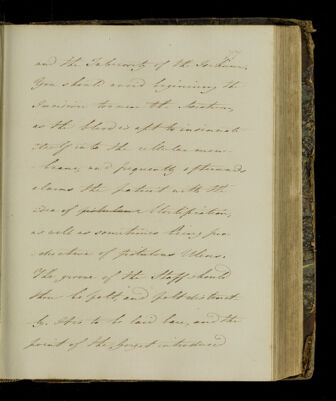 and the Tuberosity of the Ischium.
You should avoid beginning the
Incision too near the Scrotum,
as the blood is apt to insinuate
itself into the cellular mem-
brane, and frequently afterwards
alarms the patient with the
idea of Mortification,
as well as sometimes being pro-
ductive of fistulous Ulcers.
The groove of the Staff should
then be felt, and felt distinct-
ly. It is to be laid bare, and the
point of the gorget introduced